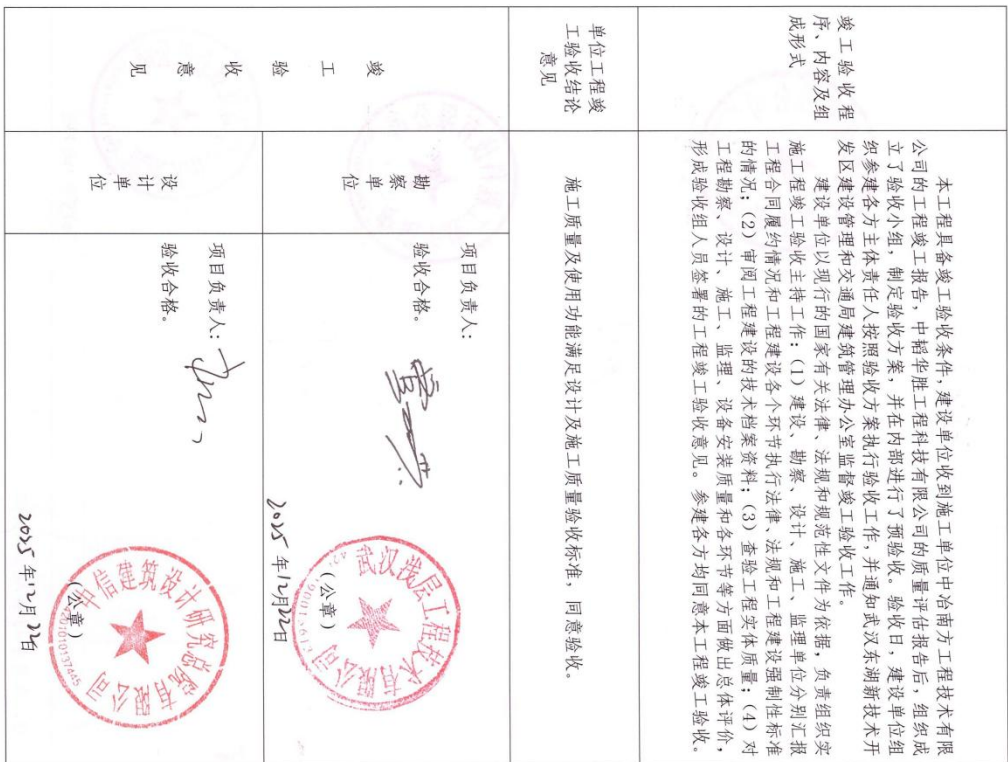 竣工验收程
序、内容及组
成形式
本工程具备竣工验收条件，建设单位收到施工单位中冶南方工程技术有限
公司的工程竣工报告，中韬华胜工程科技有限公司的质量评估报告后，组织成
立了验收小组，制定验收方案，并在内部进行了预验收。验收日，建设单位组
织参建各方主体责任人按照验收方案执行验收工作，并通知武汉东湖新技术开
发区建设管理和交通局建筑管理办公室监督竣工验收工作。
建设单位以现行的国家有关法律、法规和规范性文件为依据，负责组织实
施工程竣工验收主持工作：（1）建设、勘察、设计、施工、监理单位分别汇报
工程合同履约情况和工程建设各个环节执行法律、法规和工程建设强制性标准
的情况；（2）审阅工程建设的技术档案资料；（3）查验工程实体质量；（4）对
工程勘察、设计、施工、监理、设备安装质量和各环节等方面做出总体评价，
形成验收组人员签署的工程竣工验收意见。参建各方均同意本工程竣工验收。
单位工程竣
工验收结论
意见
施工质量及使用功能满足设计及施工质量验收标准，同意验收。
竣工验收意见
勘察单位
项目负责人：
验收合格。
武汉浅层工程技术有限公司
（公章）
2025年12月22日
设计单位
项目负责人：
验收合格。
中信建筑设计研究总院有限公司
（公章）
2025年12月22日